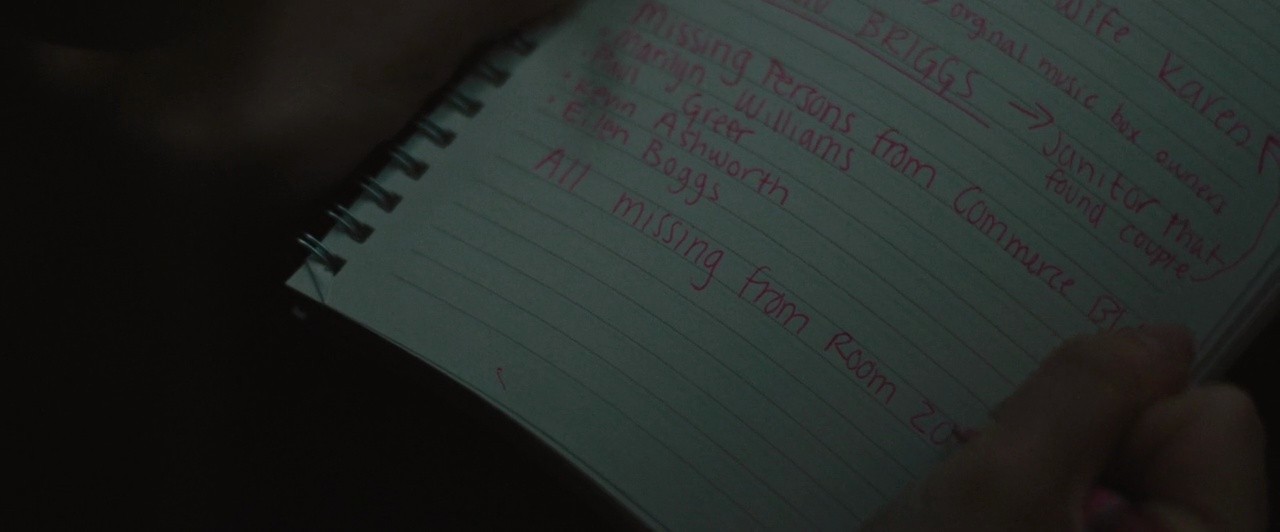 wife Karen
orginal music box owners
BRIGGS → Janitor that
found couple
Missing Persons from Commerce
Marilyn Williams
Paul Greer
Kevin Ashworth
Ellen Boggs
All missing from Room